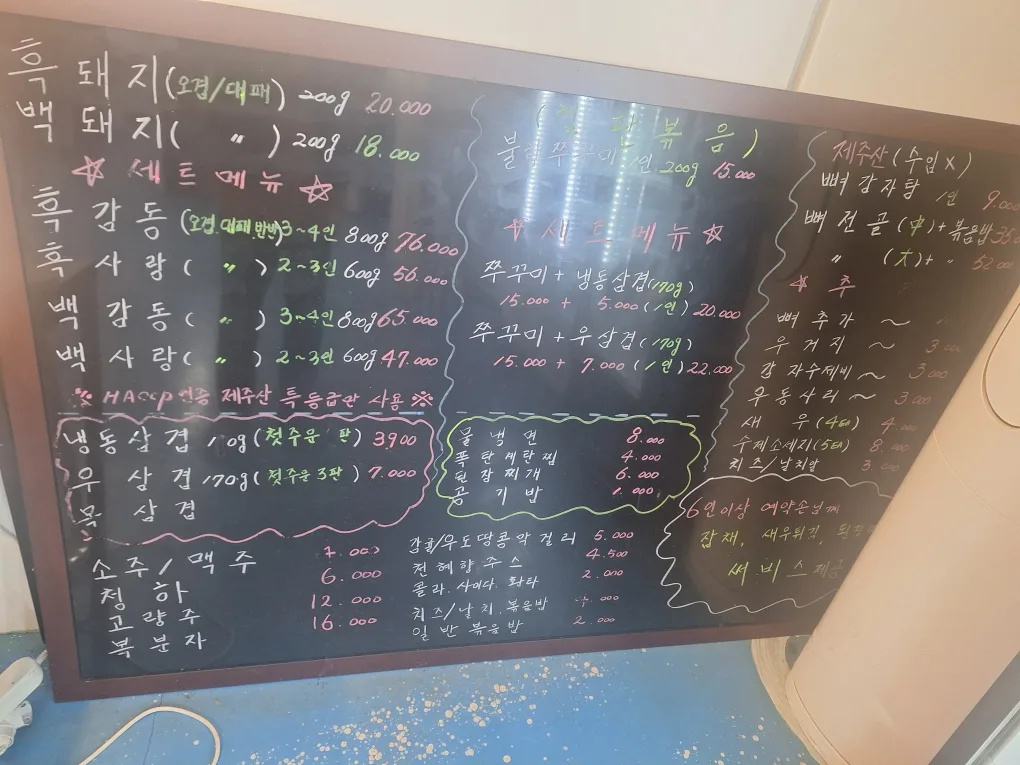 흑돼지(오겹/대패) 200g 20.000
백돼지( 〃 ) 200g 18.000
☆ 세트메뉴 ☆
흑감동(오겹.대패 반반) 3~4인 800g 76.000
흑사랑( 〃 ) 2~3인 600g 56.000
백감동( 〃 ) 3~4인 800g 65.000
백사랑( 〃 ) 2~3인 600g 47.000
※ HACCP 인증 제주산 특등급만 사용 ※
냉동삼겹 (첫주문 판) 3900
우삼겹 170g (첫주문 3판) 7.000
목삼겹
소주/맥주
청하 6.000
고량주 12.000
복분자 16.000
볶음)
쭈꾸미 1인 200g 15.000
☆ 세트메뉴 ☆
쭈꾸미 + 냉동삼겹(170g)
15.000 + 5.000 (1인) 20.000
쭈꾸미 + 우삼겹 (170g)
15.000 + 7.000 (1인) 22.000
물냉면 8.000
폭탄계란찜 4.000
된장찌개 6.000
공기밥 1.000
감귤/우도땅콩막걸리 5.000
천혜향 주스 4.500
콜라. 사이다. 환타 2.000
치즈/날치.볶음밥
일반볶음밥 2.000
제주산(수입X)
뼈감자탕 1인 9.000
뼈전골(中)+볶음밥
〃 (大)+ 〃 52.000
☆ 추
뼈추가 ~
우거지 ~ 3.000
감자수제비 ~ 3.000
우동사리 ~ 3.000
새우(4마리) 4.000
수제소세지(5개) 8.000
치즈/날치알 3.000
6인이상 예약손님께
잡채, 새우튀김,
써비스제공